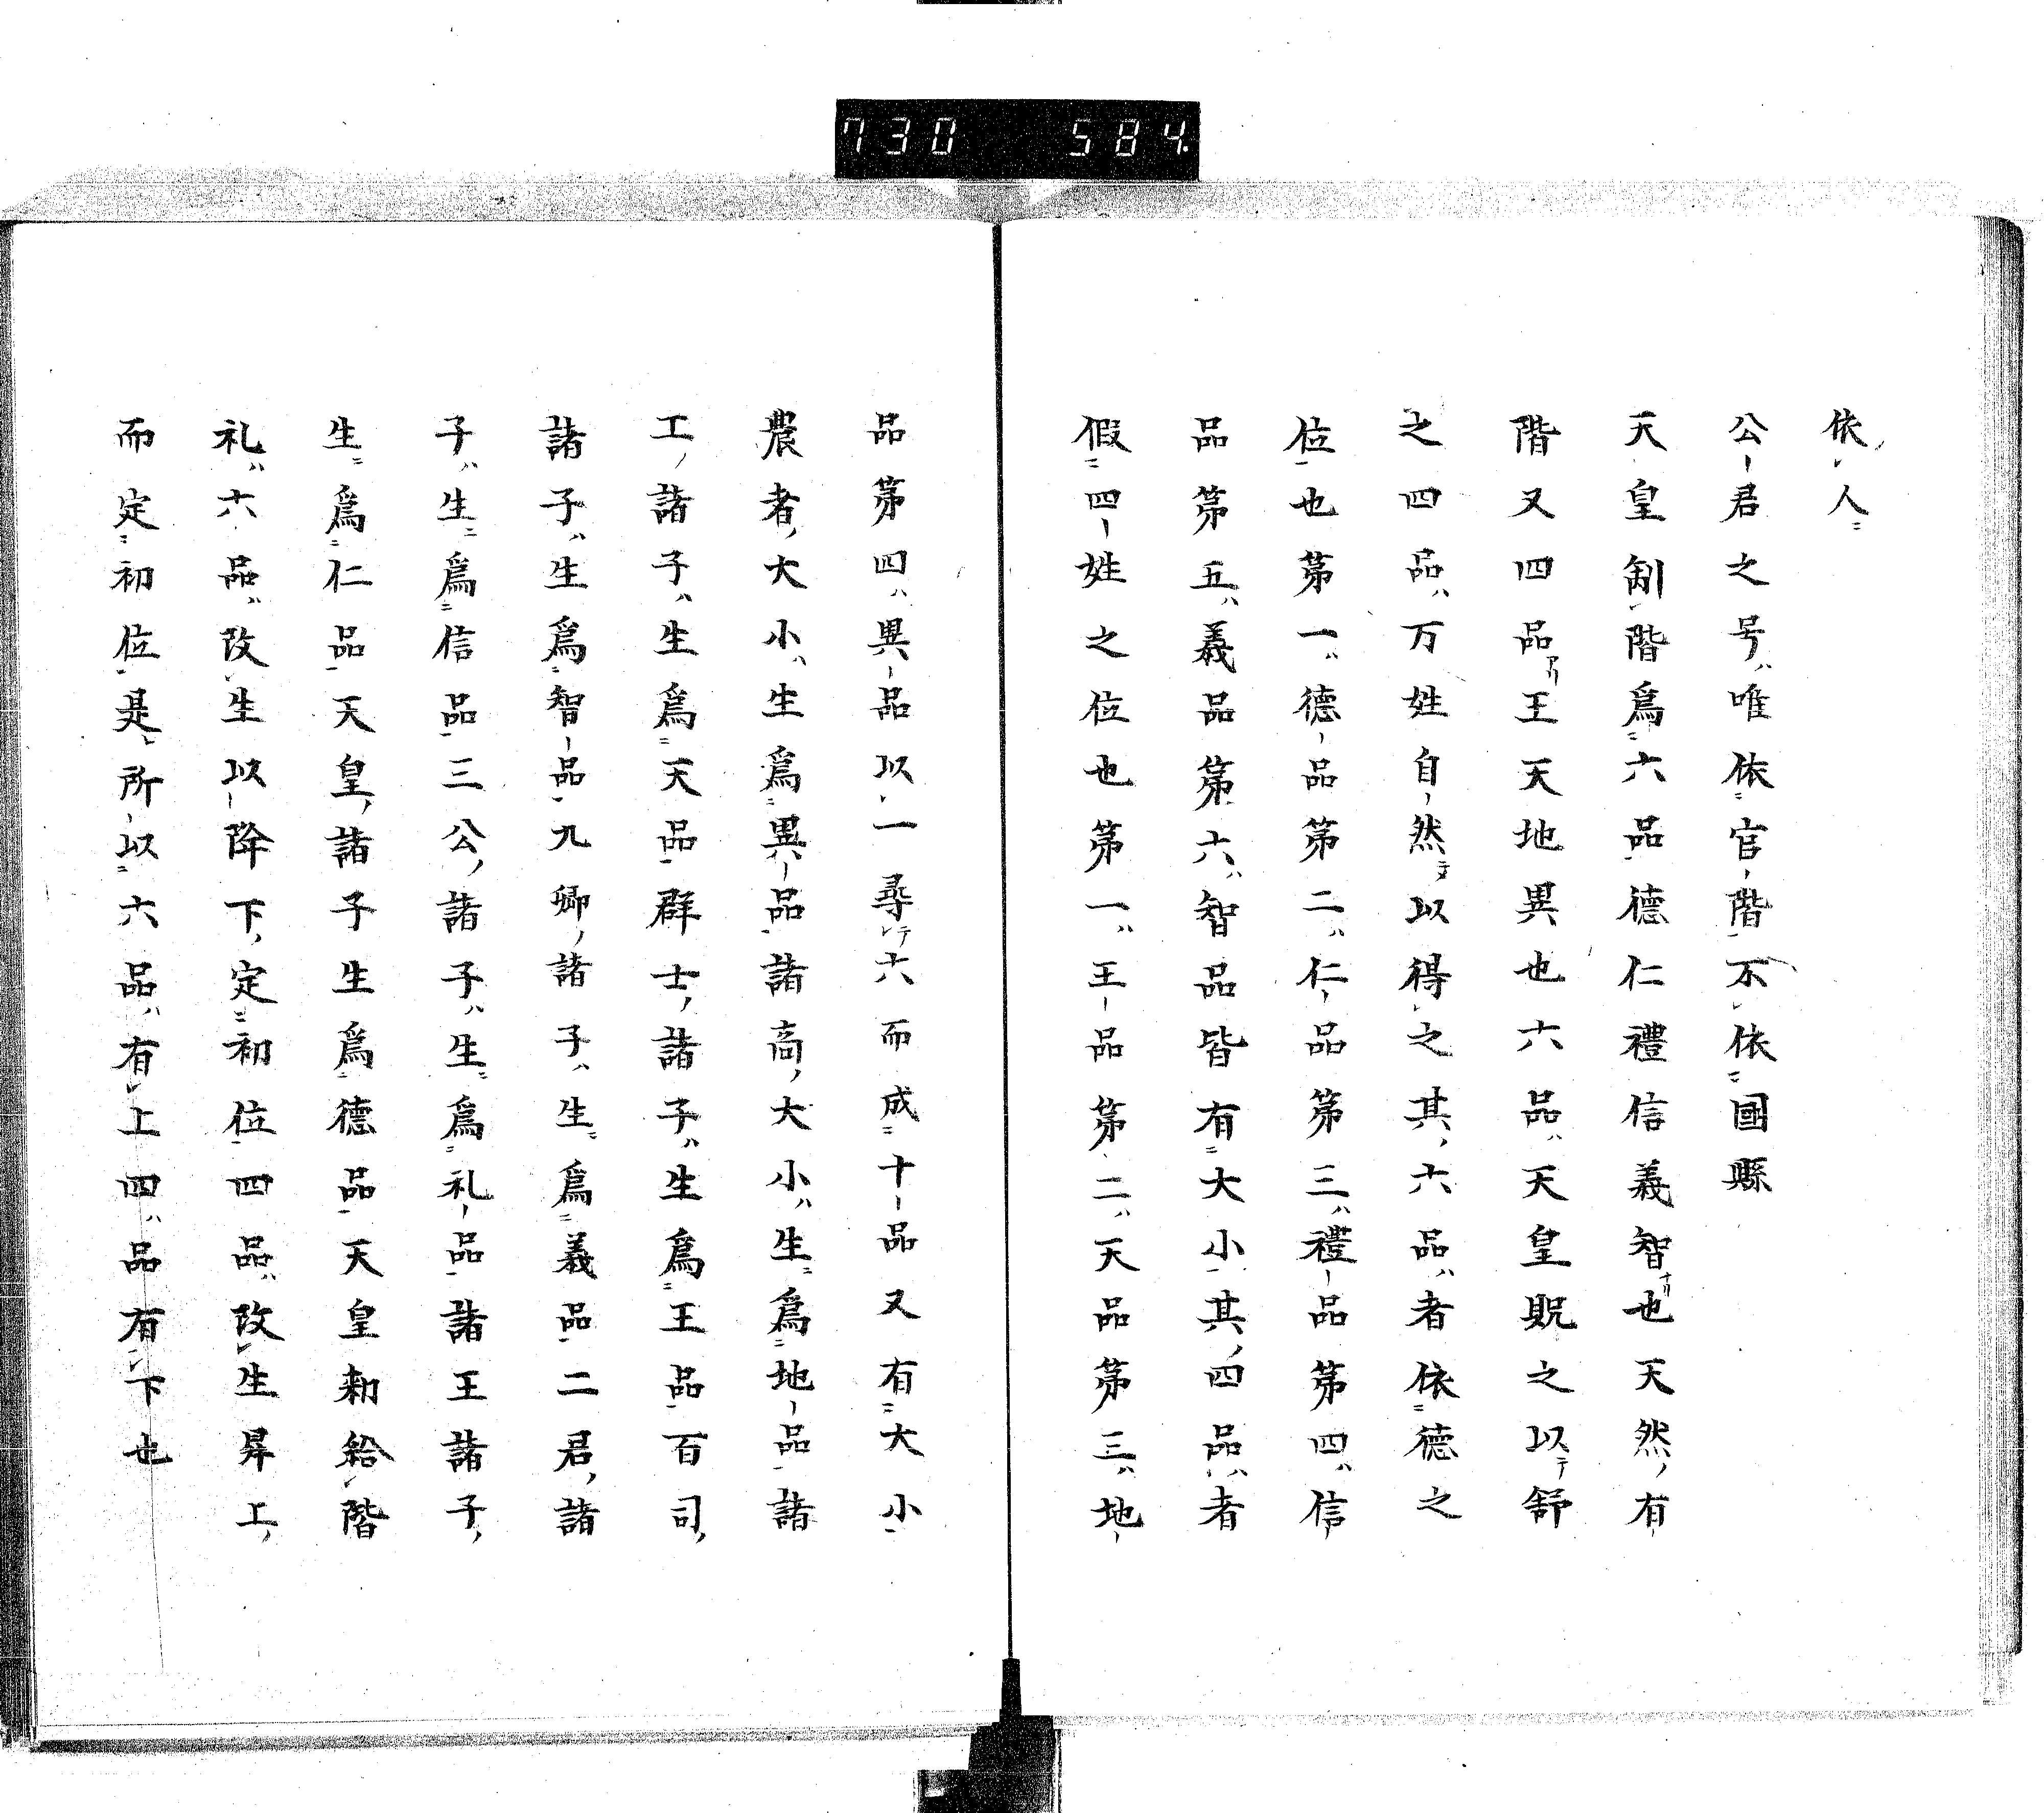 730 584
依人
公君之号唯依官階不依國縣
天皇制階爲六品德仁禮信義智也天然有
階又四品王天地異也六品天皇貺之以舒
之四品万姓自然以得之其六品者依德之
位也第一德品第二仁品第三禮品第四信
品第五義品第六智品皆有大小其四品者
假四姓之位也第一王品第二天品第三地
品第四異品以一尋六而成十品又有大小
農者大小生爲異品諸商大小生爲地品諸
工諸子生爲天品群士諸子生爲王品百司
諸子生爲智品九卿諸子生爲義品二君諸
子生爲信品三公諸子生爲礼品諸王諸子
生爲仁品天皇諸子生爲德品天皇勅給階
礼六品改生以降下定初位四品改生昇上
而定初位是所以六品有上四品有下也